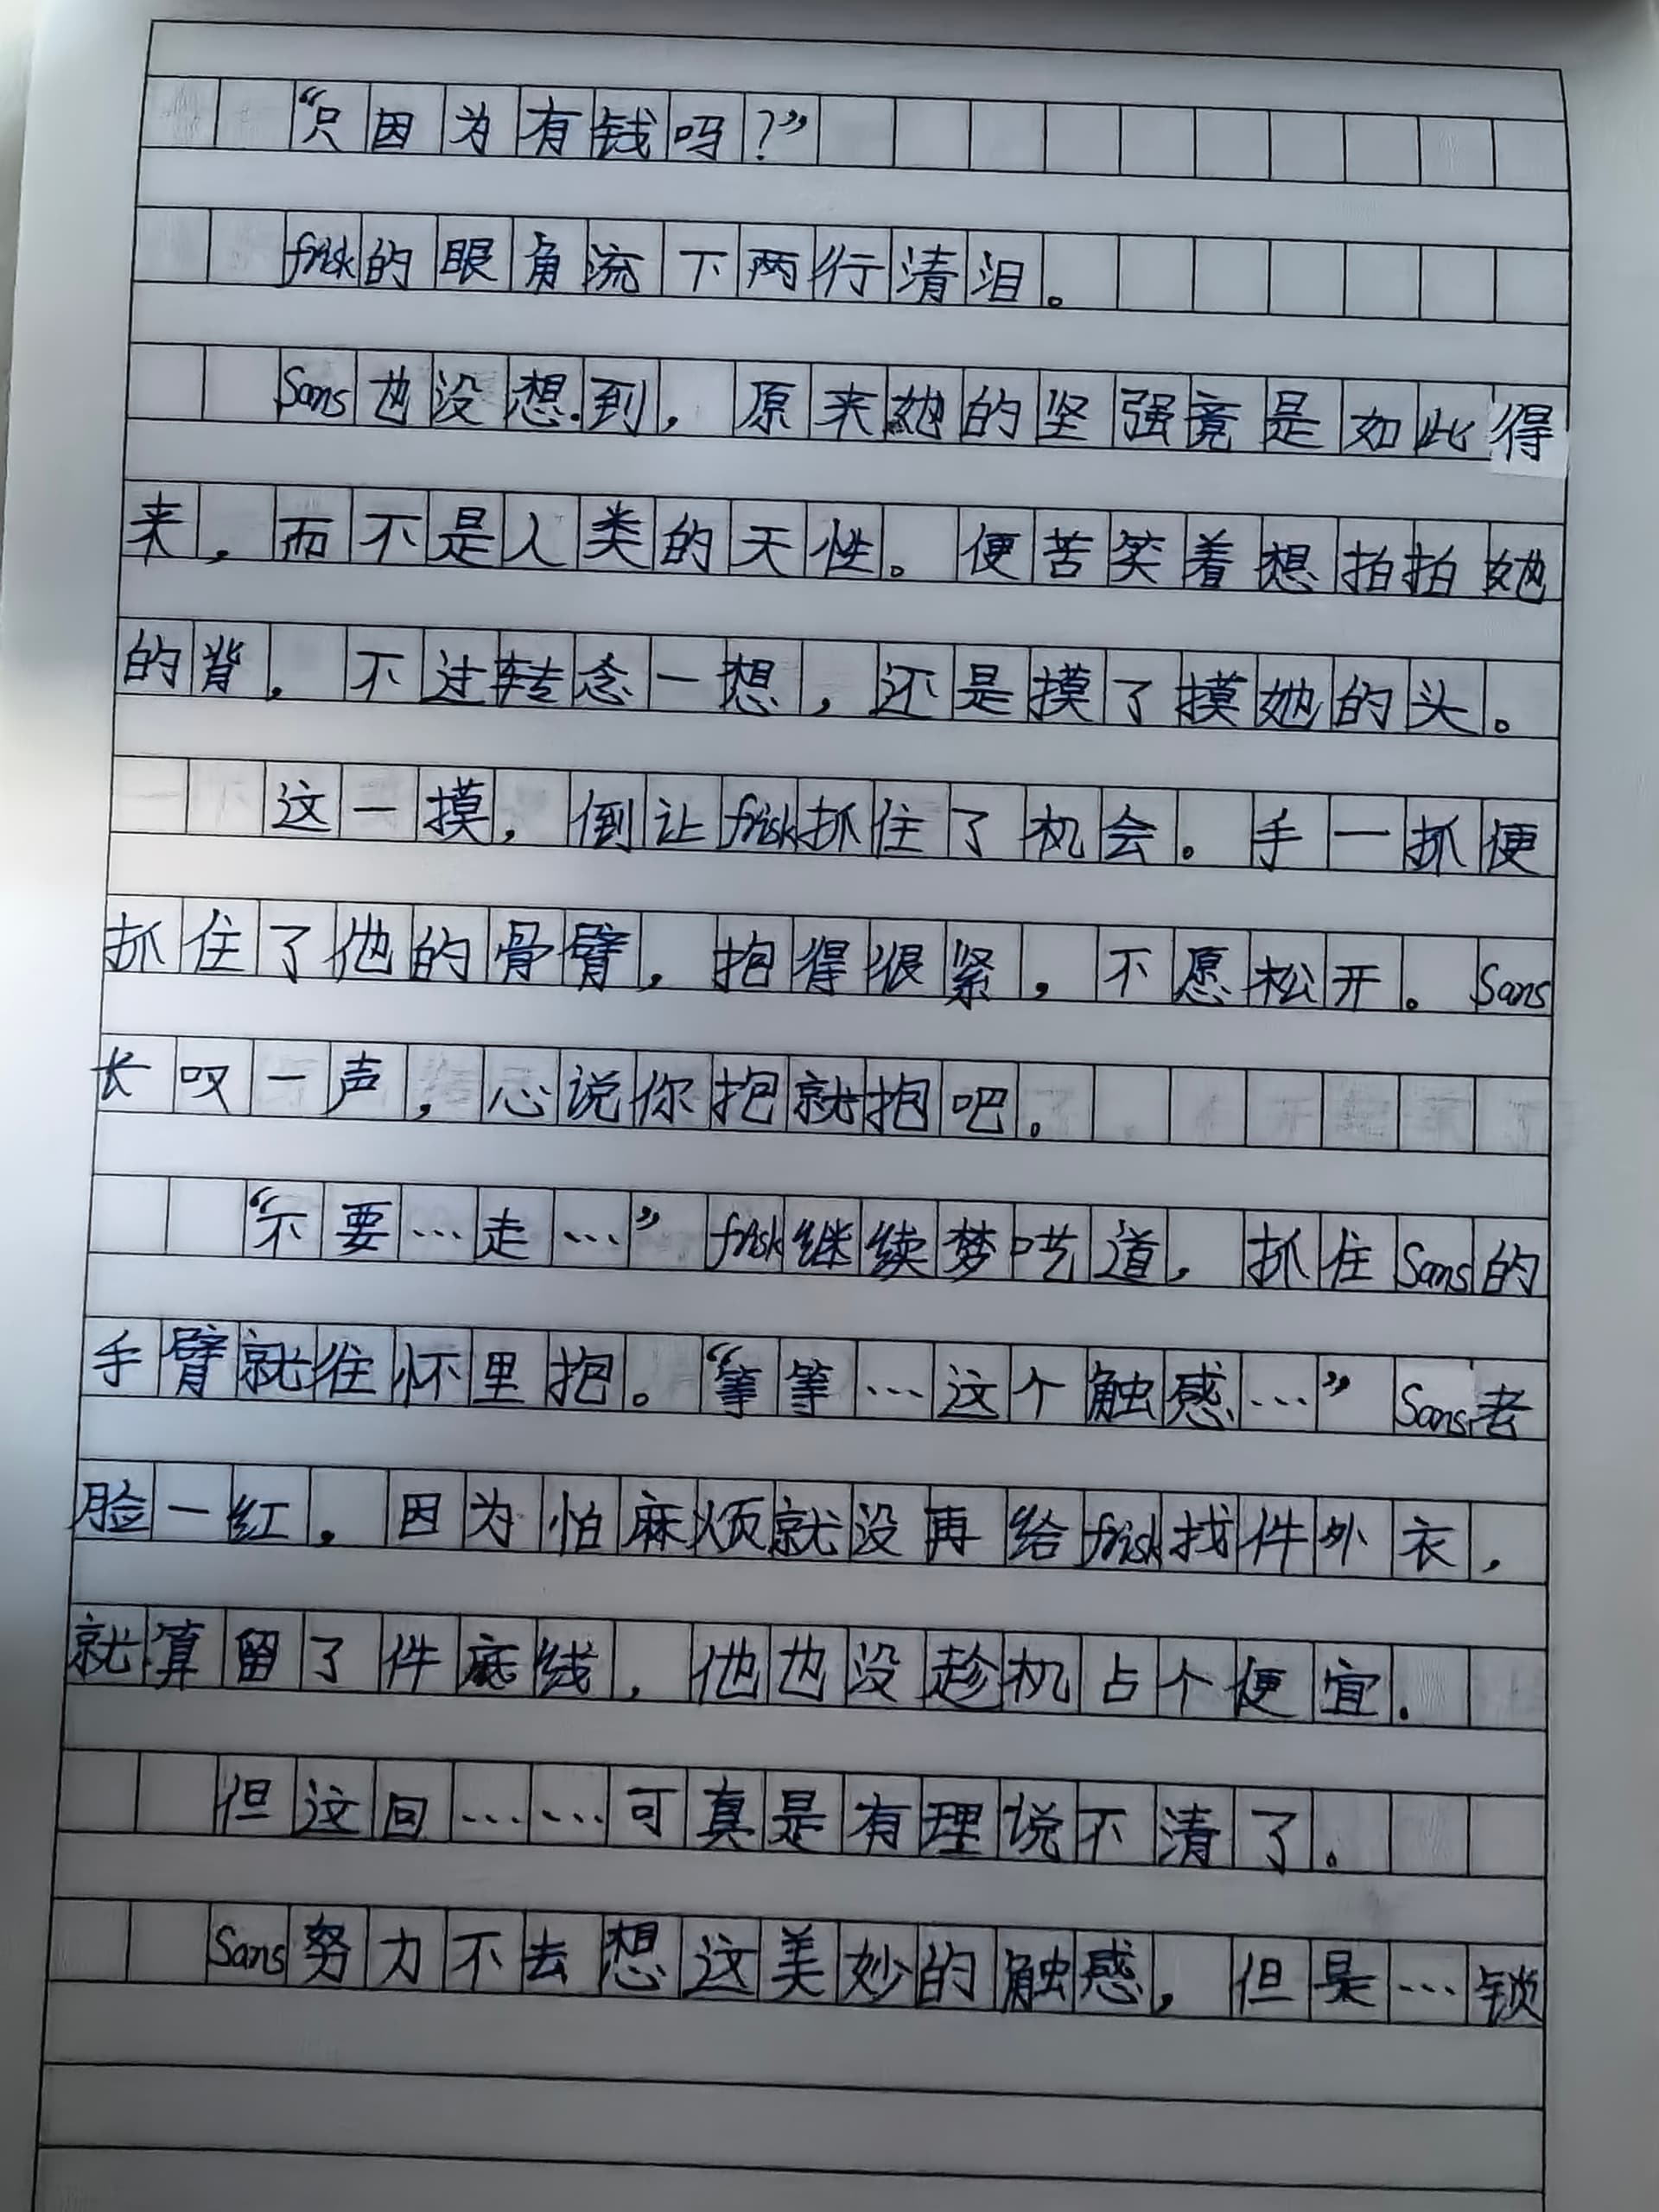 “只因为有钱吗？”
frisk的眼角流下两行清泪。
Sans也没想到，原来她的坚强竟是如此得
来，而不是人类的天性。便苦笑着想拍拍她
的背，不过转念一想，还是摸了摸她的头。
这一摸，倒让frisk抓住了机会。手一抓便
抓住了他的骨臂，抱得很紧，不愿松开。Sans
长叹一声，心说你抱就抱吧。
“不要…走…”frisk继续梦呓道，抓住Sans的
手臂就往怀里抱。“等等…这个触感…”Sans老
脸一红，因为怕麻烦就没再给frisk找件外衣，
就算留了件底线，他也没趁机占个便宜.
但这回……可真是有理说不清了。
Sans努力不去想这美妙的触感，但是…锁